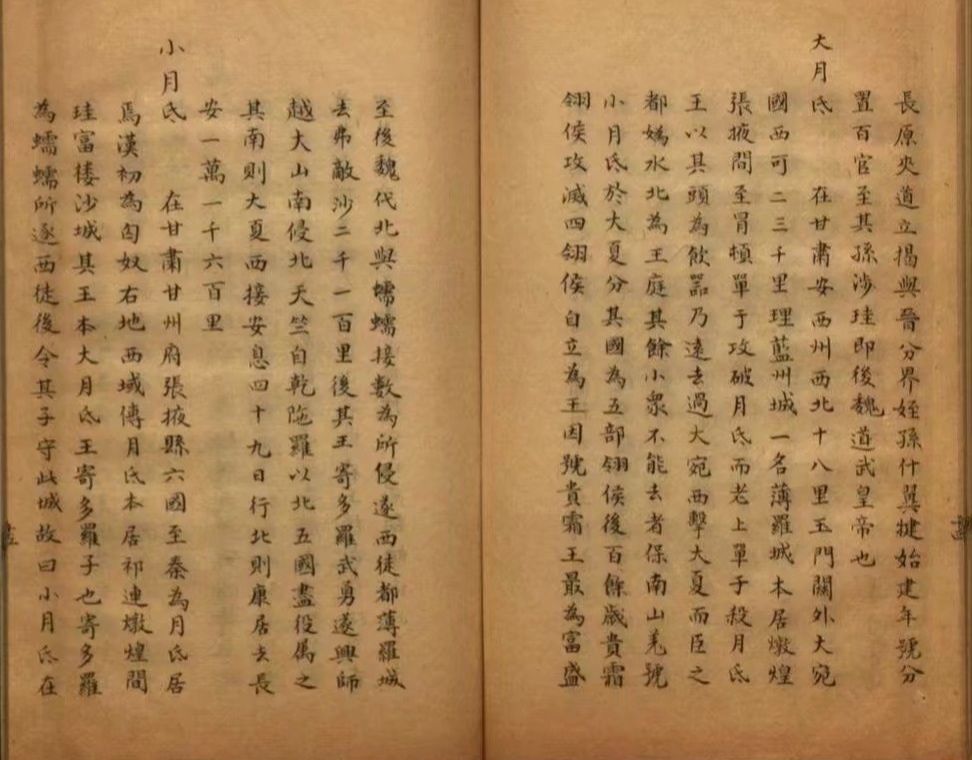 長原夾道立揭與晉分界姪孫什翼揵始建年號分
置百官至其孫涉珪即後魏道武皇帝也
大月氏　在甘肅安西州西北十八里玉門關外大宛
國西可二三千里理藍州城一名薄羅城本居燉煌
張掖間至冐頓單于攻破月氏而老上單于殺月氏
王以其頭為飲噐乃遠去過大宛西擊大夏而臣之
都媯水北為王庭其餘小衆不能去者保南山羌號
小月氏於大夏分其國為五部翎侯後百餘嵗貴霜
翎侯攻滅四翎侯自立為王因號貴霜王最為富盛
至後魏代北與蠕蠕接數為所侵遂西徙都薄羅城
去弗敵沙二千一百里後其王寄多羅武勇遂興師
越大山南侵北天竺自乾陁羅以北五國盡役屬之
其南則大夏西接安息四十九日行北則康居去長
安一萬一千六百里
小月氏　在甘肅甘州府張掖縣六國至秦為月氏居
焉漢初為匈奴右地西域傳月氏本居祁連燉煌間
珪富樓沙城其王本大月氏王寄多羅子也寄多羅
為蠕蠕所逐西徙後令其子守此城故曰小月氏在